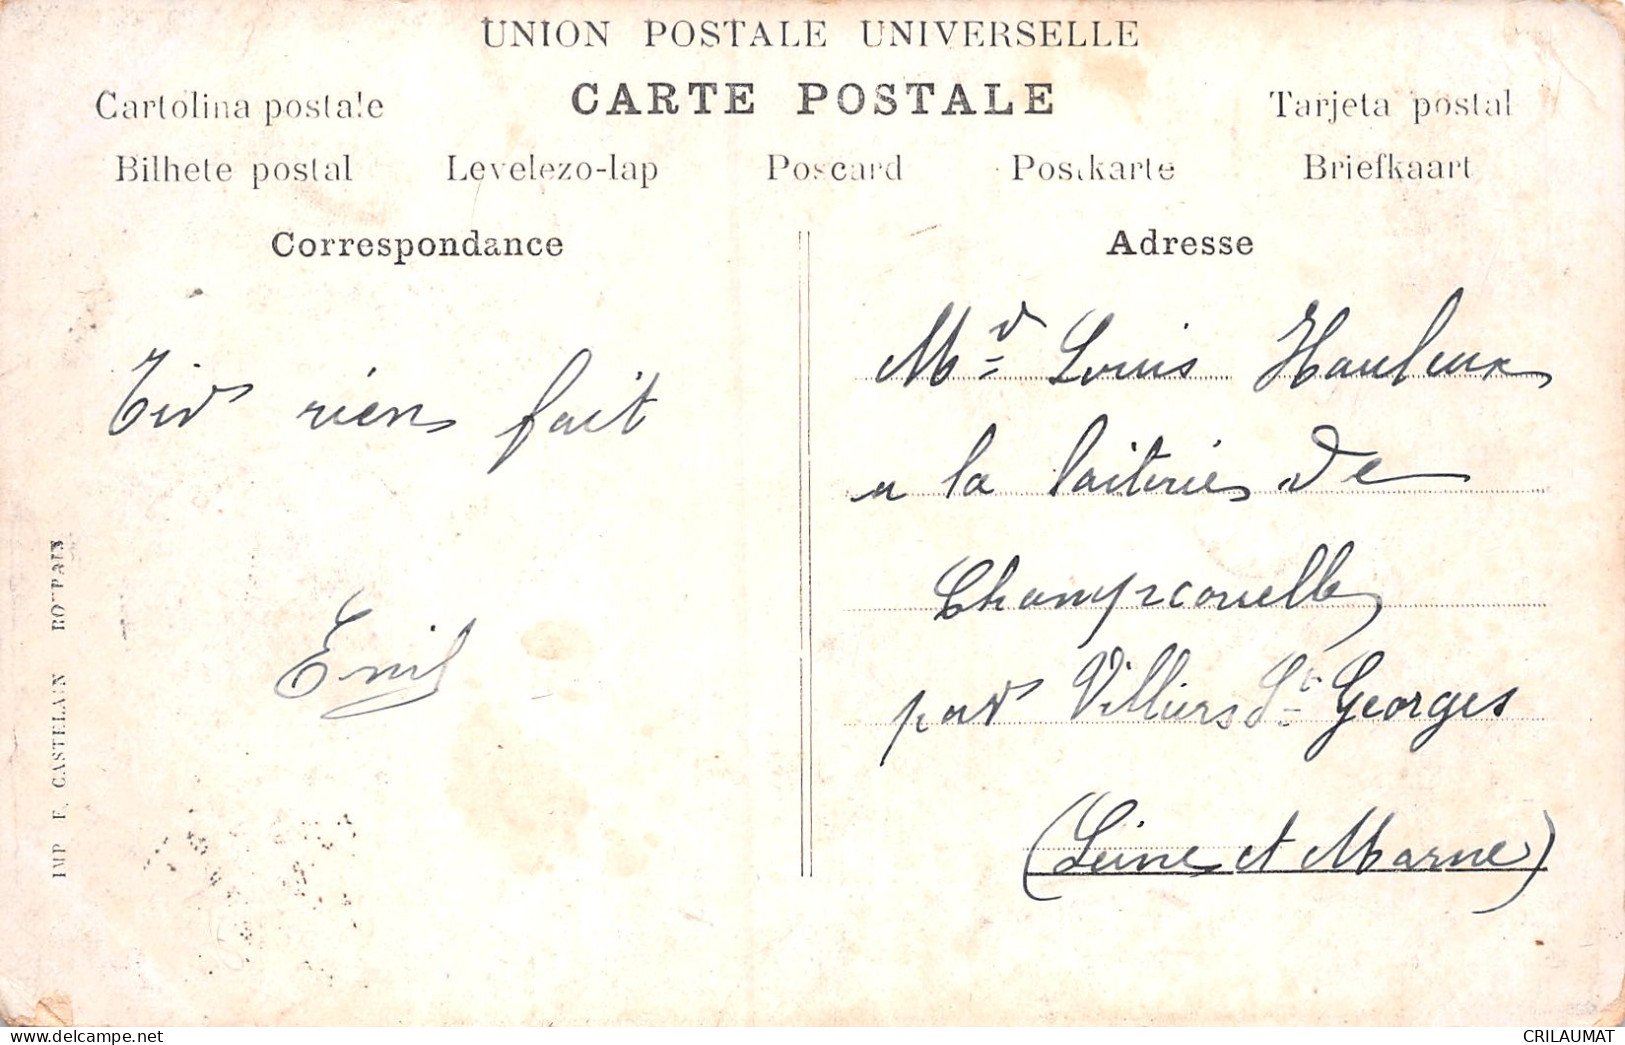 UNION POSTALE UNIVERSELLE
CARTE POSTALE
Cartolina postale
Tarjeta postal
Bilhete postal
Levelezo-lap
Poscard
Postkarte
Briefkaart
Correspondance
rien fait
Emil
IMP E. CASTELAIN ROUBAIX
Adresse
Mr Louis
a la laiteries de
Champcouelle
par Villiers St Georges
(Seine et Marne)
CRILAUMAT